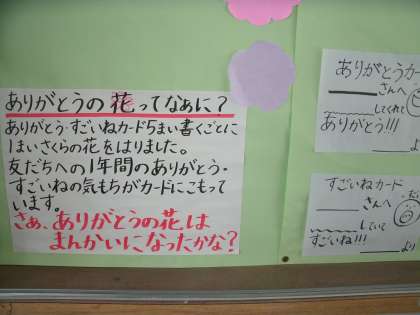 ありがとうの花ってなぁに？
ありがとう・すごいねカード5まい書くごとに
1まいさくらの花をはりました。
友だちへの1年間のありがとう・
すごいねの気もちがカードにこもって
います。
さぁ、ありがとうの花は
まんかいになったかな？
ありがとうカー
さんへ
してくれて
ありがとう!!!
よ
すごいねカード
さんへ
していて
すごいね!!!
より